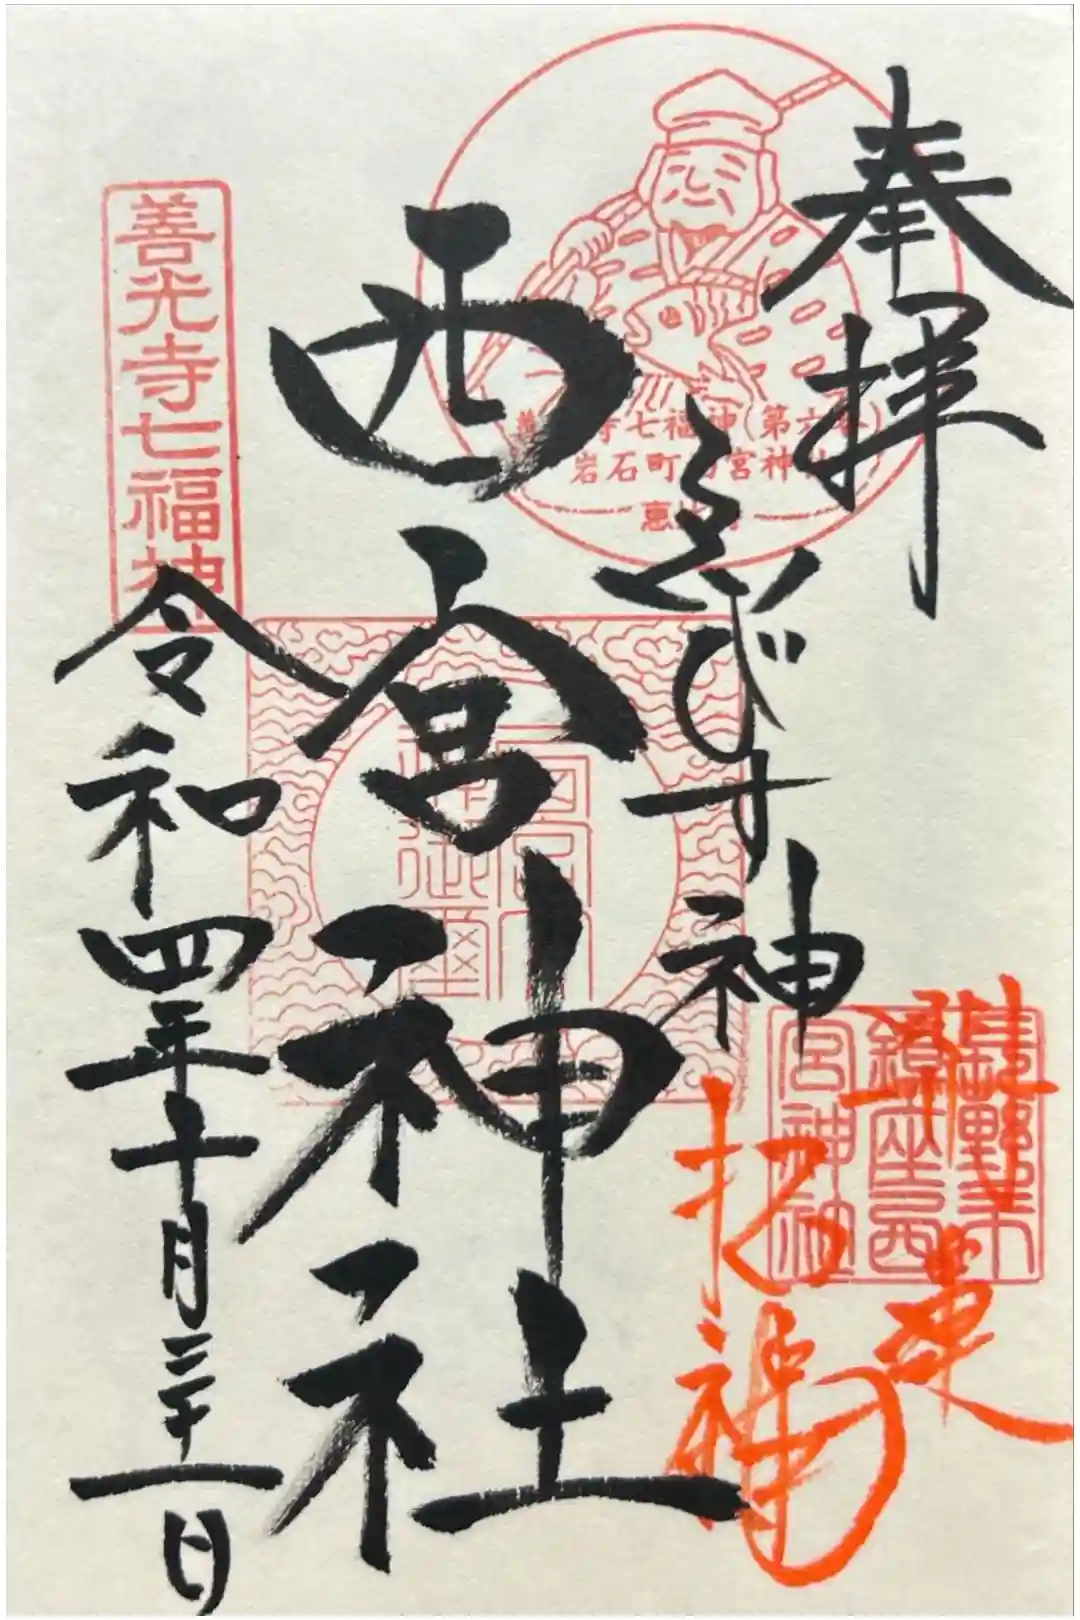 奉拝
善
寺七福神(第六番)
岩石町西宮神社
恵比寿
えびす神
長野市
鎮座西
宮神社
招福
西宮神社
善光寺七福神
令和四年十月三十一日